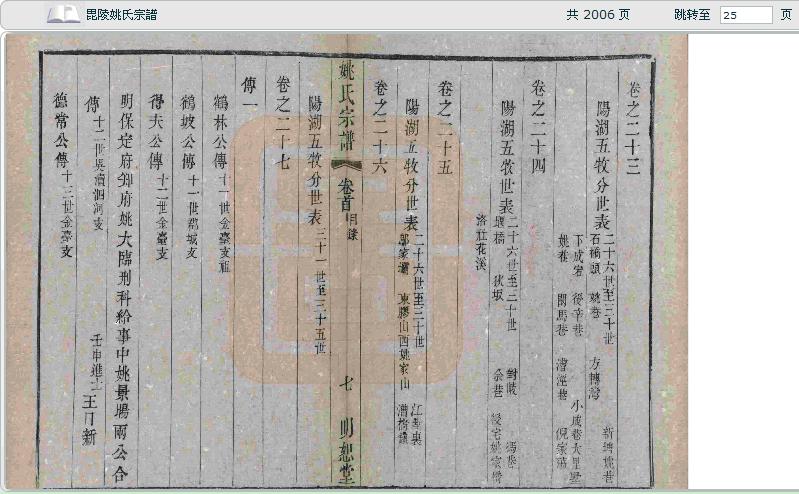 毘陵姚氏宗譜
共 2006 页
跳转至 25 页
卷之二十三
陽湖五牧分世表 二十六世至三十世
石橋頭 姚巷 方轉灣 新灣姚巷
下成宕 後幸巷 小成巷大里墅
姚巷 閔馬巷 漕涇巷
卷之二十四
陽湖五牧世表 二十六世至三十世
堰橋 狄坂 對岐 馮巷
余巷
洛社花溪
卷之二十五
陽湖五牧分世表 二十六世至三十世
鄒家壩 東膠山西姚家山 江對裏
漕橋鎮
卷之二十六
姚氏宗譜 卷首 目錄 七 明恕堂
陽湖五牧分世表 三十一世至三十五世
卷之二十七
傳一
鶴林公傳 十一世金臺支祖
鶴坡公傳 十一世鶴城支
得夫公傳 十二世金臺支
明保定府知府姚大臨刑科給事中姚景暘兩公合
傳 十二世吳瀆泗河支 壬申進士 王日新
德常公傳 十三世金臺支